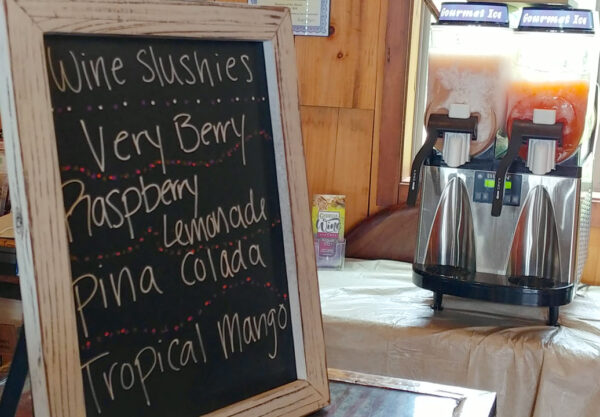 Wine Slushies
Very Berry
Raspberry
Lemonade
Pina Colada
Tropical Mango
Gourmet Ice
Gourmet Ice
Wine